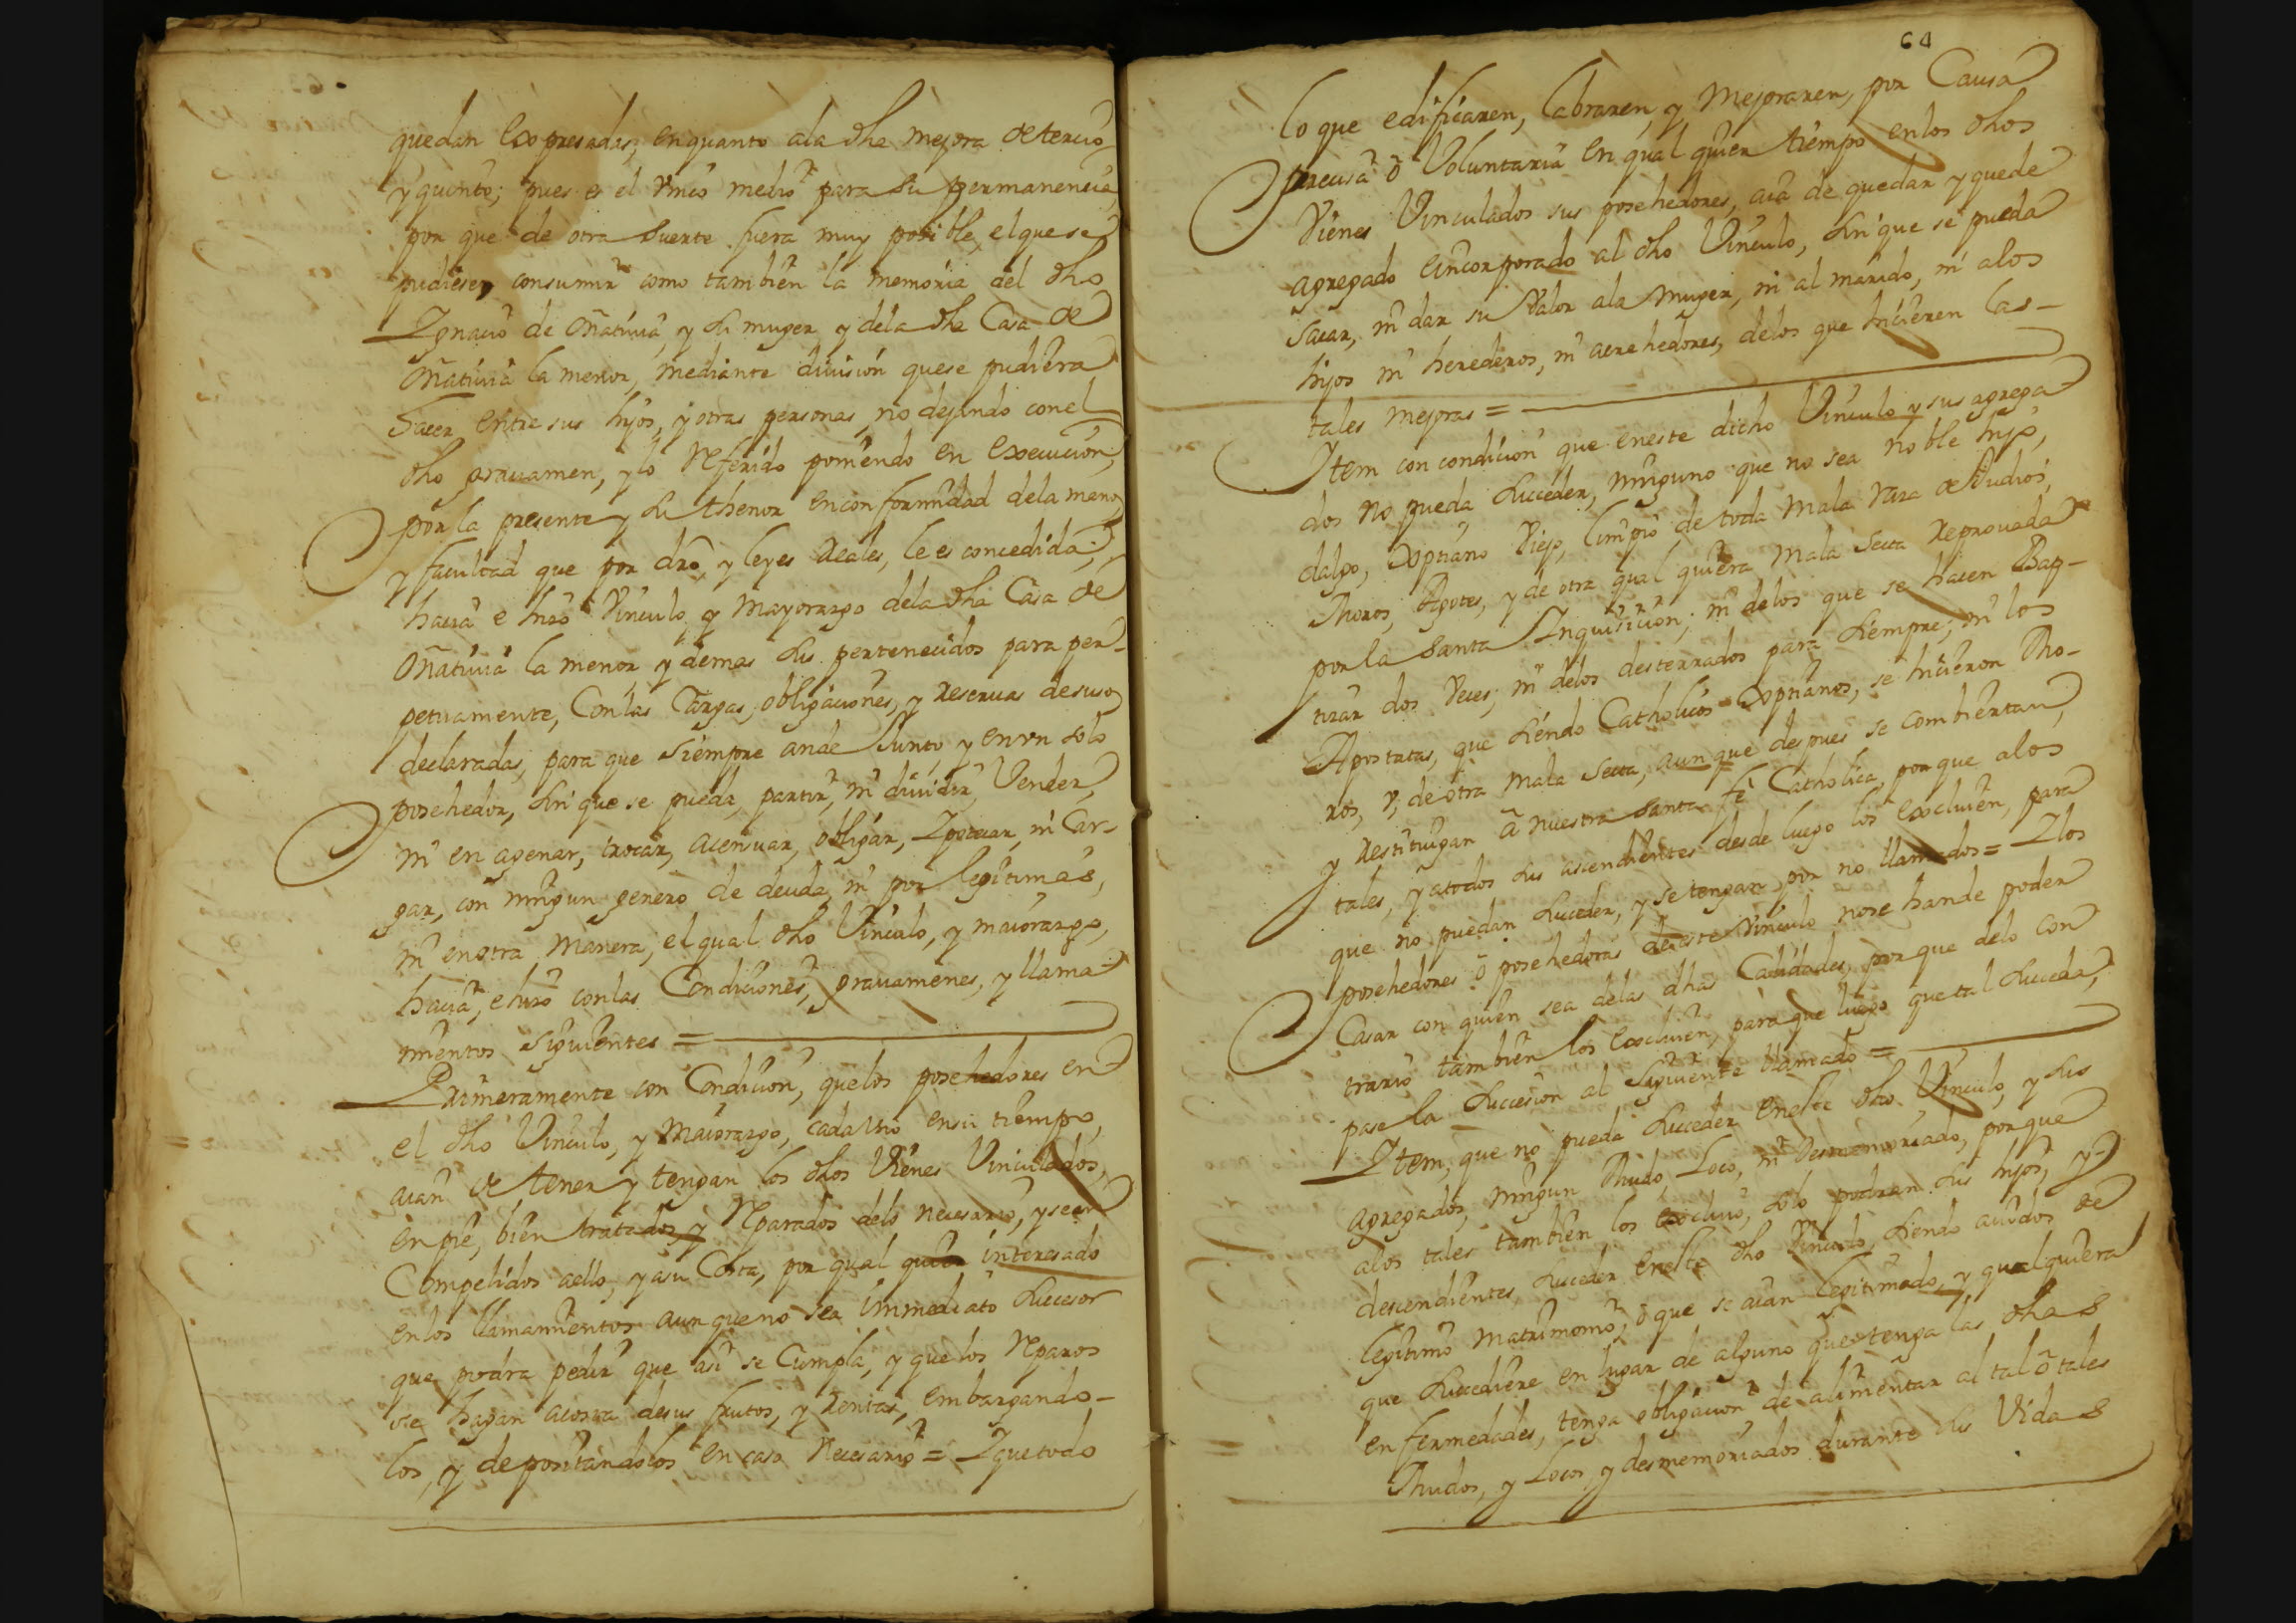 quedan expresadas, enquanto ala dha mejora de tercio
y quinto; pues es el vnico medio para su permanencia,
por que de otra suerte fuera muy posible, el que se
pudiese, consumir como tambien la memoria del dho
Ignacio de Oñativia, y su muger y dela dha Casa de
Oñativia la menor, mediante diuision quese pudiera
hacer entre sus hijos, y otras personas, no dejando con el
dho grauamen, y lo referido poniendo en execucion,
por la presente y su thenor en conformidad dela mano,
y facultad que por dro, y leyes Reales, le es concedida,
hacia e hizo Vinculo y Mayorazgo dela dha Casa de
Oñativia la menor, y demas sus pertenecidos para per-
petuamente, Con las Cargas, obligaciones, y reseruas desuso
declaradas, para que siempre ande Junto, y en vn solo
posehedor, sin que se pueda, partir, ni diuidir, Vender,
ni en agenar, trocar, acensuar, obligar, Ipotecar, ni Car-
gar, con ningun genero de deuda, ni por legitimas,
ni en otra manera, el qual dho Vinculo, y maiorazgo,
hacia, e hizo con las Condiciones, grauamenes, y llama-
mientos siguientes =
Primeramente con Condicion, que los posehedores en
el dho Vinculo, y Maiorazgo, cada Vno en su tiempo,
aian de tener y tengan los dhos Vienes Vinculados,
en pie, bien tratados y reparados delo necesario, y sean
Compelidos aello, y asu Costa, por qual quier interesado
en los llamamientos aunque no sea immediato succesor
que podra pedir que asi se Cumpla, y que los reparos
se hagan acosta desus frutos, y rentas, embargando-
los, y depositandolos en caso necesario = Y que todo
64
lo que edificaren, labraren, y Mejoraren, por Causa
precisa ò Voluntaria en qual quier tiempo en los dhos
Vienes Vinculados sus posehedores, aia de quedar y quede
agregado e incorporado al dho Vinculo, sin que se pueda
sacar, ni dar su Valor ala muger, ni al marido, ni alos
hijos ni herederos, ni acrehedores, delos que hicieren las-
tales mejoras =
Item con condicion que en este dicho Vinculo y sus agrega-
dos no pueda succeder, ninguno que no sea noble hijo,
dalgo, Xptiano Viejo, limpio de toda mala raza de Judios,
Moros, Agotes, y de otra qual quiera mala secta reprouada
por la Santa Inquisicion; ni delos que se hacen Bap-
tizar dos Veces; ni delos desterrados para siempre; ni los
Apostatas, que siendo Catholicos Xptianos, se hicieron Mo-
ros, v, de otra mala secta, aunque despues se combiertan,
y restituigan à nuestra santa fè Catholica, porque alos
tales, y atodos sus ascendientes desde luego los excluien, para
que no puedan succeder, y se tengan por no llamados = Y los
posehedores ò posehedoras de este Vinculo nose hande poder
Casar con quien sea delas dhas Calidades, por que delo con
trario tambien los excluien, para que luego que tal succeda,
pase la succesion al siguiente llamado =
Item, que no pueda succeder en este dho Vinculo, y sus
agregados, ningun Mudo, Loco, ni Desmemoriado, por que
alos tales tambien los excluio, solo podran sus hijos, y
descendientes, succeder en este dho Vinculo, siendo auidos de
legitimo matrimonio, ò que se aian legitimado, y qualquiera
que succediere en lugar de alguno que tenga las dhas
enfermedades, tenga obligacion de alimentar al tal ò tales
Mudos, y Locos, y desmemoriados durante sus Vidas